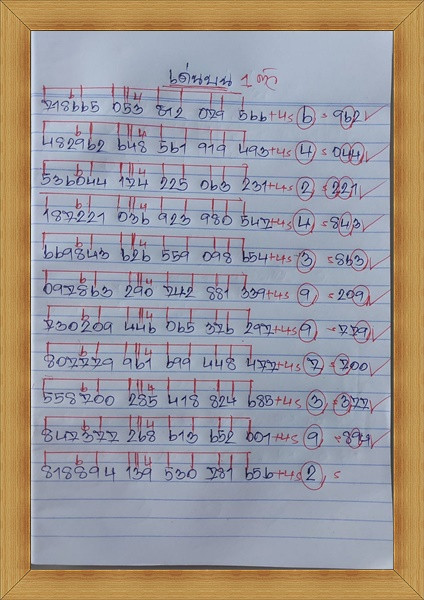 เด่นบน 1 ตัว
718665 053 812 029 566+4s 6 = 962 ✓
482962 648 561 919 493+4s 4 = 044 ✓
536044 174 225 063 231+4s 2 = 221 ✓
187221 036 923 980 547+4s 4 = 843 ✓
669843 626 559 098 654+4s 3 = 863 ✓
097863 290 742 881 339+4s 9 = 209 ✓
730209 446 065 376 297+4s 9 = 779 ✓
807779 961 699 448 477+4s 7 = 700 ✓
558700 285 418 824 685+4s 3 = 377 ✓
847377 268 613 652 001+4s 9 = 894 ✓
818894 139 530 781 656+4s 2 =